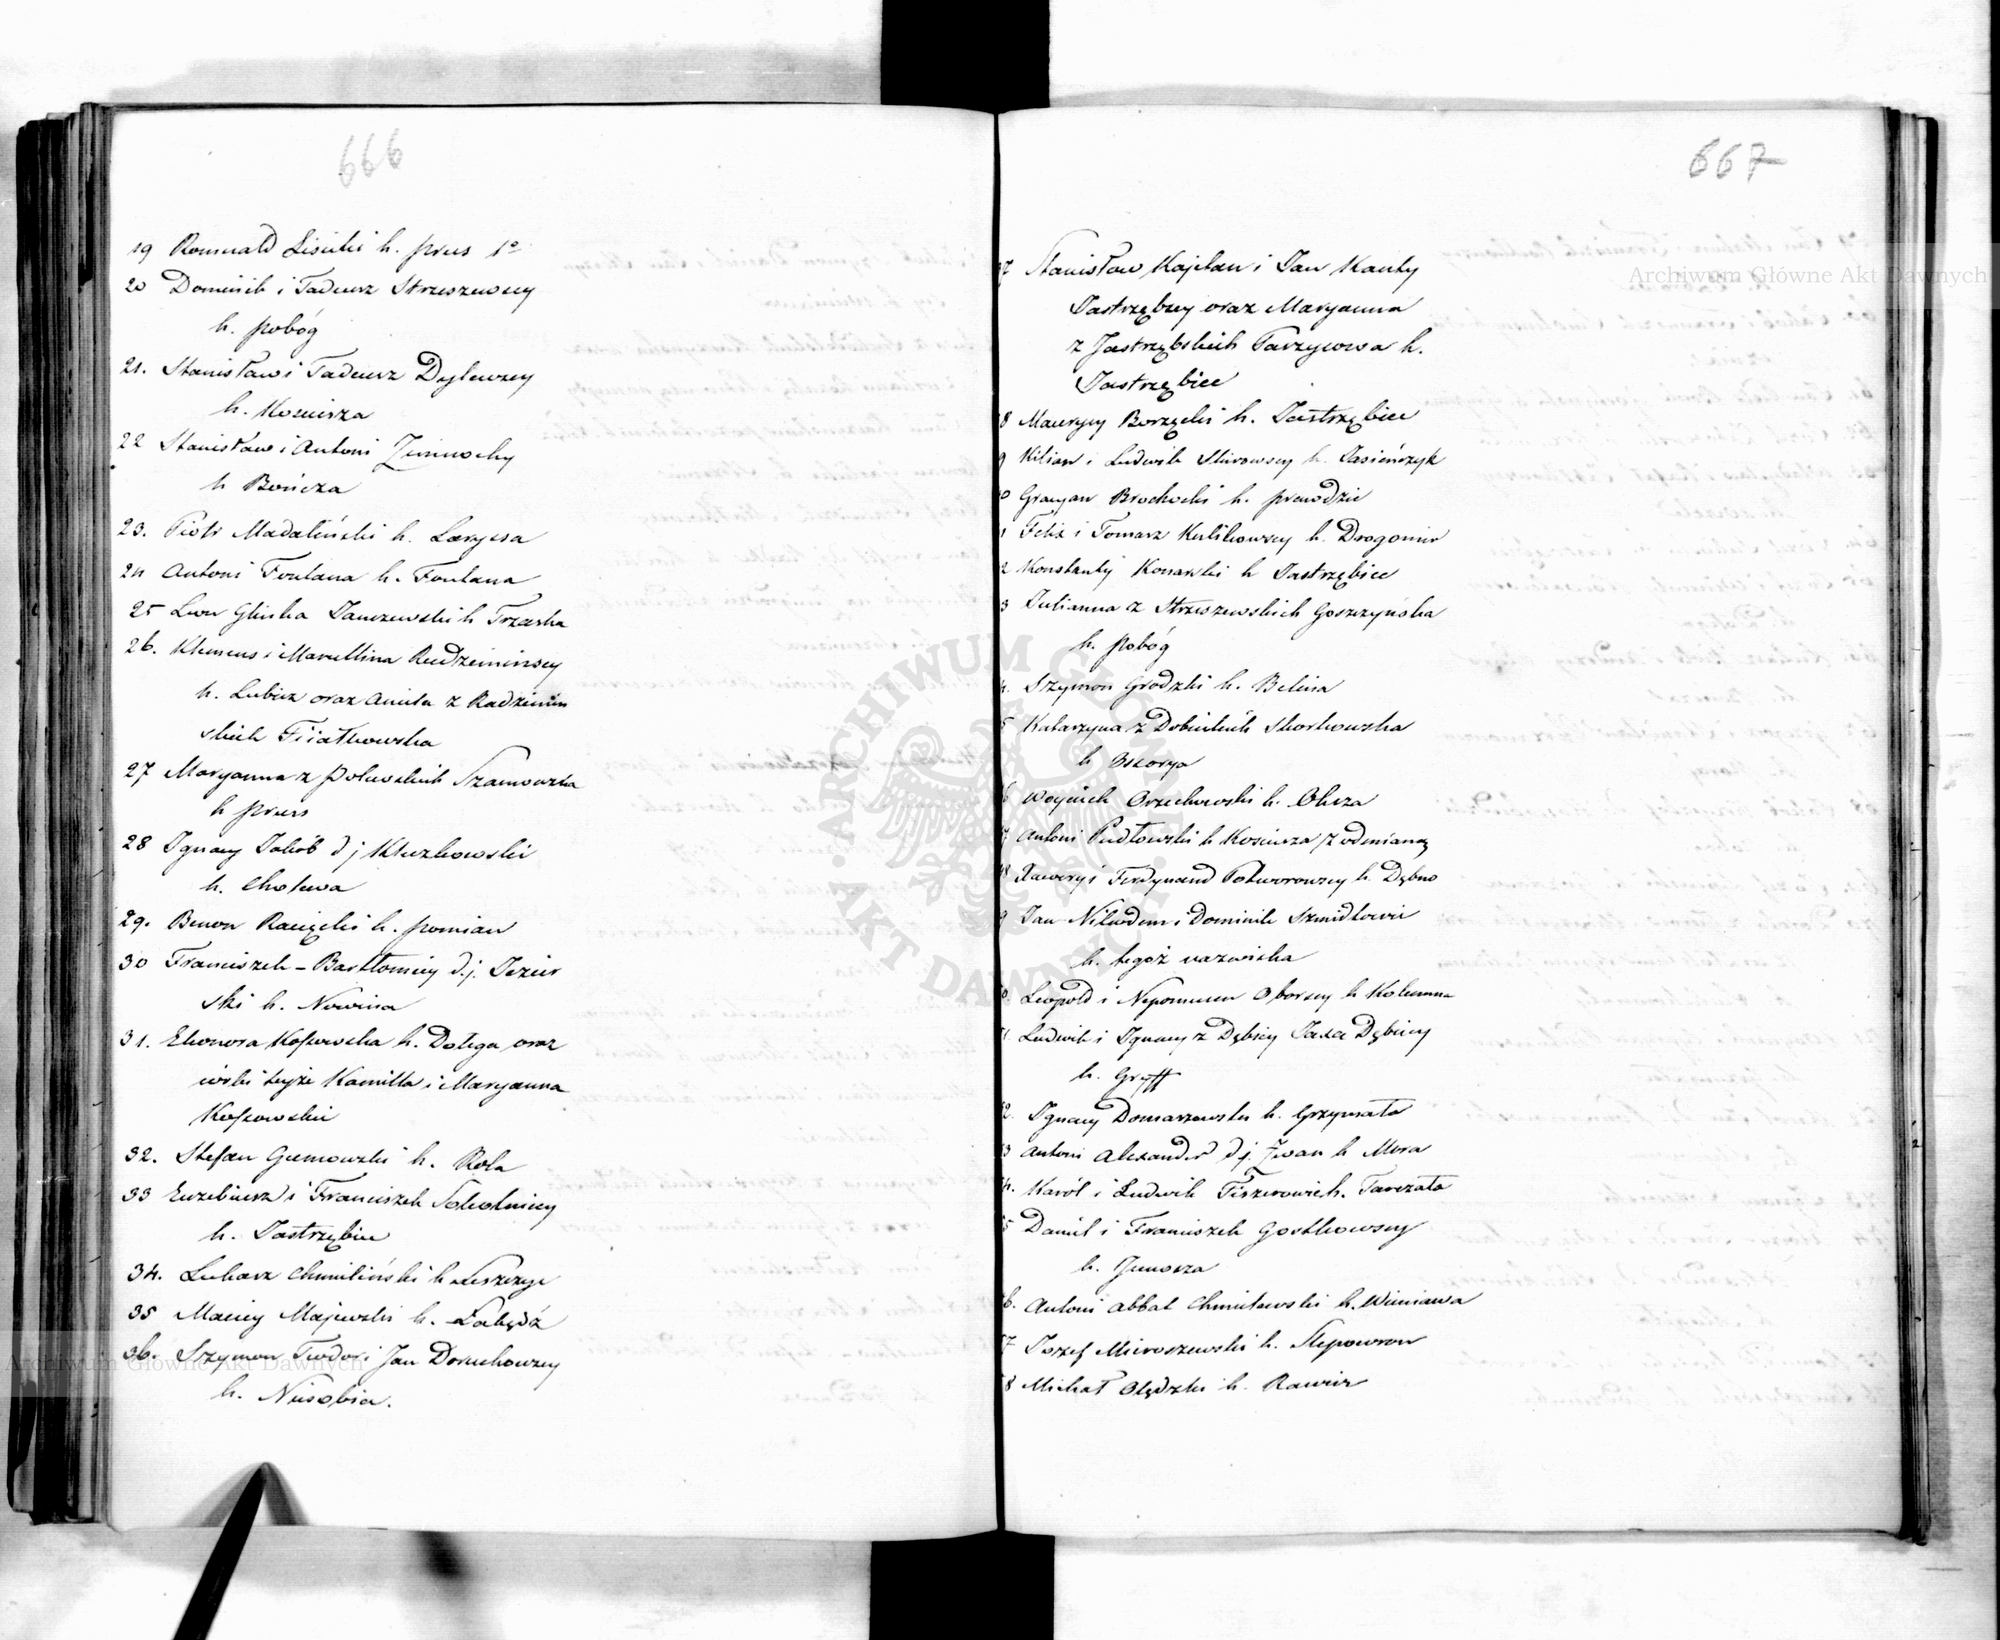 666
19 Romuald Lisicki h. prus 1º
20 Dominik i Tadeusz Strzeszewscy
h. pobóg
21. Stanisław i Tadeusz Dylewscy
h. Kościesza
22 Stanisław i Antoni Zimnochy
h Bończa
23. Piotr Madaliński h. Laryssa
24 Antoni Fontana h. Fontana
25 Leon Glinka Janczewski h Trzaska
26. Klemens i Marcellina Radzimińscy
h. Lubicz oraz Aniela z Radzimiń
skich Fiiałkowska
27 Maryanna z Szamowska
h prus
28 Ignacy Jakób d j Kluzkowski
h. Cholewa
29. Benon Racięcki h. pomian
30 Franciszek - Bartłomiey d. j. Jezier
ski h. Nowina
31. Eleonora Kossowska h. Dołęga oraz
córki teyże Kamilla i Maryanna
Kossowskie
32. Stefan Giemowski h. Rola
33 Euzebiusz i Franciszek Sokolniccy
h. Jastrzębiec
34. Łukasz Chmieliński h Leszczyc
35 Maciey Majewski h. Łabędź
36. Szymon Teodor i Jan Doruchowscy
h. Niesobia.
667
7 Stanisław Kajetan i Jan Kanty
Jastrzębscy oraz Maryanna
z Jastrzębskich Tarzycowa h.
Jastrzębiec
8 Maurycy Borzęcki h. Jastrzębiec
9 Kilian i Ludwik Skirowscy h. Jasieńczyk
0 Gracyan Brochocki h. prawdzic
1 Felix i Tomasz Kulikowscy h. Drogomir
2 Konstanty Konarski h Jastrzębiec
3 Julianna z Strzeszewskich Goszczyńska
h. pobóg
4. Szymon Grodzki h. Belina
5 Katarzyna z Dobieckich Skorkowska
h Ossorya
6 Woyciech Orzechowski h. Oksza
7 Antoni Pudłowski h Kościesza z odmianą
8 Xawery i Ferdynand Potworowscy h. Dębno
9 Jan Nikodem i Dominik Szmidtowie
h. tegoż nazwiska
0. Leopold i Nepomucen Oborscy h Kolumna
1. Ludwik i Ignacy z Dębicy Jaxa Dębiccy
h. Gryff
2. Ignacy Domaszewski h. Grzymała
3 Antoni Alexander d j. Iwan h Mora
4. Karól i Ludwik Fiszerowie h. Taczała
5 Daniel i Franciszek Gostkowscy
h. Junosza
6. Antoni Abbat Chmielewski h. Wieniawa
7 Jozef Mieroszewski h. Slepowron
8 Michał Olędzki h. Rawicz
Archiwum Główne Akt Dawnych
Archiwum Główne Akt Dawnych
ARCHIWUM GŁÓWNE AKT DAWNYCH